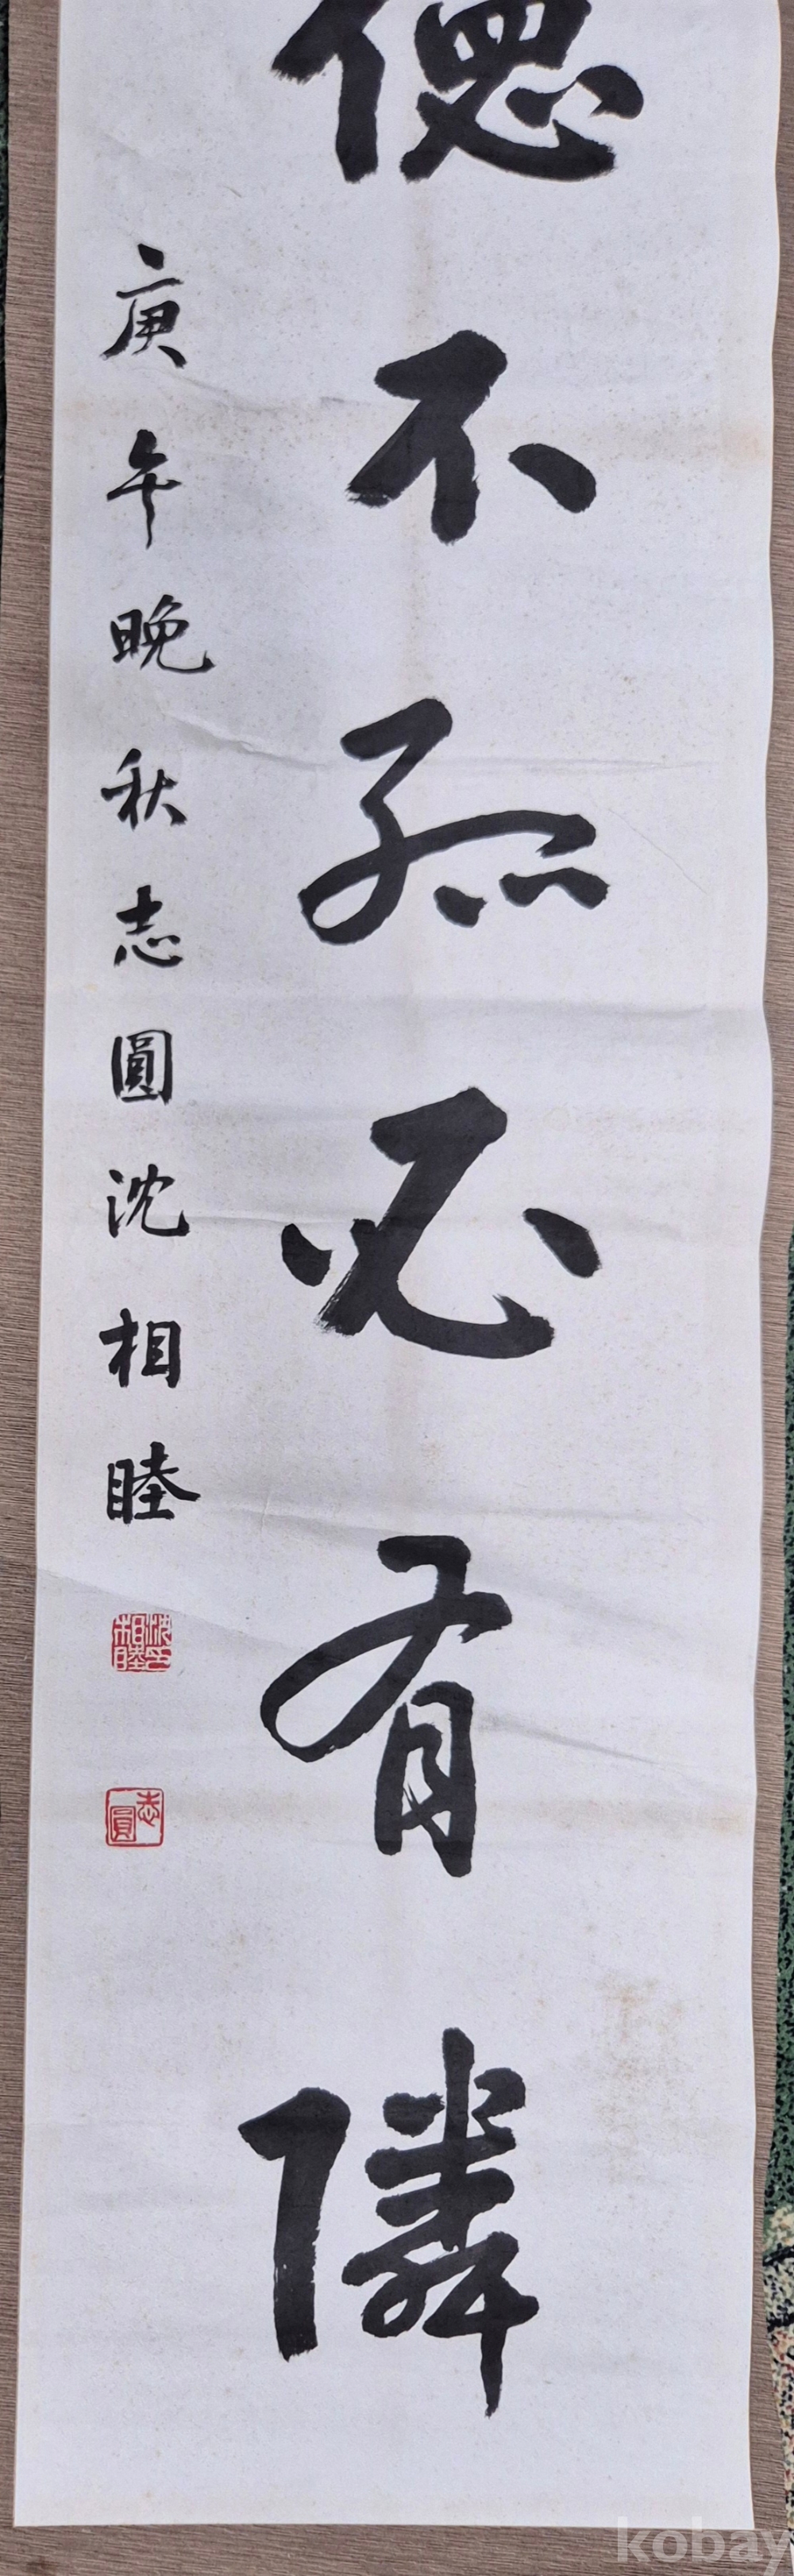 德不孤必有隣
庚午晚秋志圓沈相睦
沈相睦印
志圓
kobay